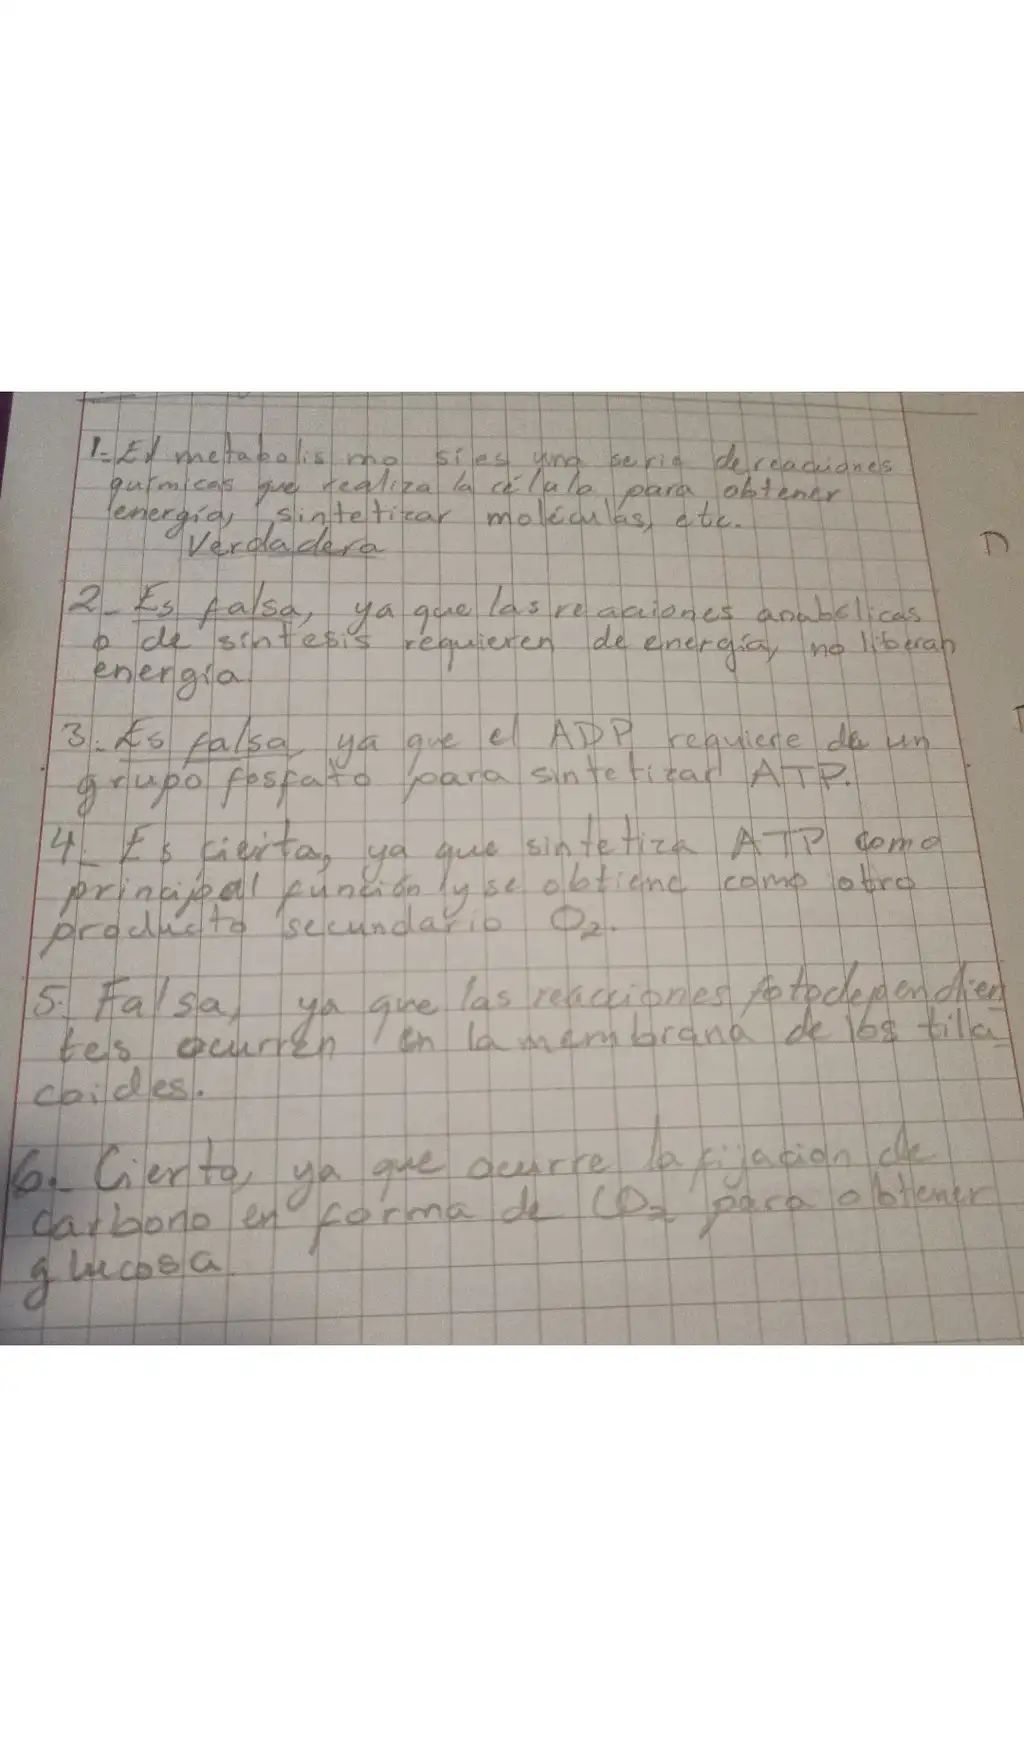 1.- El metabolismo si es una serie de reacciones
químicas que realiza la célula para obtener
energía, sintetizar moléculas, etc.
Verdadera
2.- Es falsa, ya que las reacciones anabólicas
o de síntesis requieren de energía, no liberan
energía.
3.- Es falsa ya que el ADP requiere de un
grupo fosfato para sintetizar ATP.
4.- Es cierta, ya que sintetiza ATP como
principal función y se obtiene como otro
producto secundario O2.
5.- Falsa, ya que las reacciones fotodependien
tes ocurren en la membrana de los tila
coides.
6.- Cierta, ya que ocurre la fijación de
carbono en forma de CO2 para obtener
glucosa